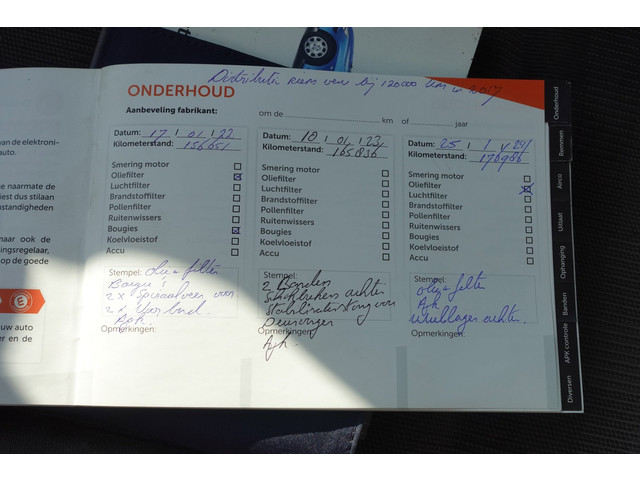 Distributie riem ver. bij 120000 km in 2017
ONDERHOUD
Aanbeveling fabrikant:
om de km of jaar
Datum: 17 / 01 / 22
Kilometerstand: 156651
Smering motor
Oliefilter
Luchtfilter
Brandstoffilter
Pollenfilter
Ruitenwissers
Bougies
Koelvloeistof
Accu
Stempel: olie + filter
Bougie's
2 x Spiraalveer voor
2 x
Apk.
Opmerkingen:
Datum: 10 / 01 / 23
Kilometerstand: 165836
Smering motor
Oliefilter
Luchtfilter
Brandstoffilter
Pollenfilter
Ruitenwissers
Bougies
Koelvloeistof
Accu
Stempel:
2 Banden
Schokbrekers achter
Stabilisatorstang voor
Opmerkingen:
Apk.
Datum: 25 / 1 / 24
Kilometerstand: 176986
Smering motor
Oliefilter
Luchtfilter
Brandstoffilter
Pollenfilter
Ruitenwissers
Bougies
Koelvloeistof
Accu
Stempel:
olie + filter
Apk
Wiellager achter.
Opmerkingen:
van de elektroni-
auto.
naarmate de
iest dus stilaan
standigheden
naar ook de
ngsregelaar,
op de goede
uw auto
er en de
Onderhoud
Remmen
Airco
Uitlaat
Ophanging
Banden
APK controle
Diversen